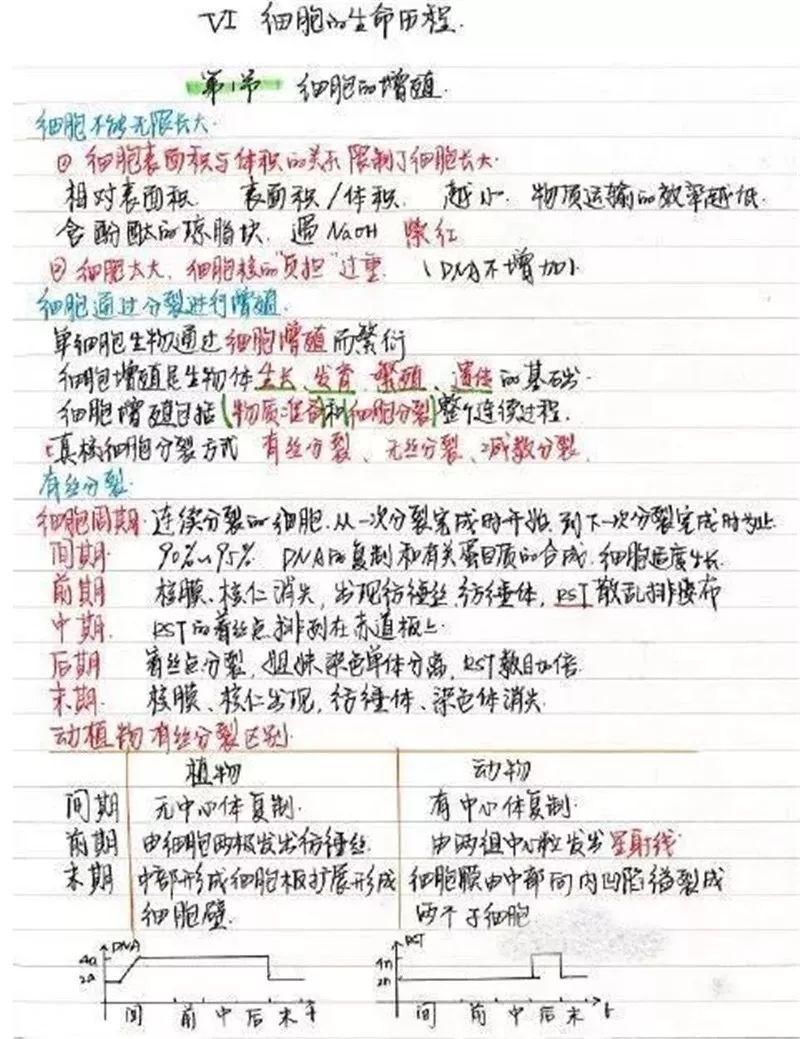 VI 细胞的生命历程.
第1节 细胞的增殖.
细胞不能无限长大.
① 细胞表面积与体积的关系限制了细胞长大.
相对表面积. 表面积/体积. 越小. 物质运输的效率越低.
含酚酞的琼脂块. 遇NaOH 紫红
② 细胞太大, 细胞核的“负担”过重. (DNA不增加).
细胞通过分裂进行增殖.
单细胞生物通过细胞增殖而繁衍
细胞增殖是生物体生长、发育、繁殖、遗传的基础.
细胞增殖包括(物质准备)和(细胞分裂)整个连续过程.
真核细胞分裂方式 有丝分裂、无丝分裂、减数分裂.
有丝分裂.
细胞周期: 连续分裂的细胞.从一次分裂完成时开始.到下一次分裂完成时为止
间期. 90%~95% DNA的复制和有关蛋白质的合成.细胞适度生长.
前期 核膜、核仁消失, 出现纺锤丝.纺锤体, RST散乱排布
中期. RST的着丝点排列在赤道板上.
后期 着丝点分裂, 姐妹染色单体分离, RST数目加倍.
末期. 核膜、核仁出现, 纺锤体、染色体消失.
动植物有丝分裂区别.
植物 动物
间期 无中心体复制. 有中心体复制.
前期 由细胞两极发出纺锤丝. 由两组中心粒发出星射线
末期 中部形成细胞板扩展形成 细胞膜由中部向内凹陷缢裂成
细胞壁. 两个子细胞.
DNA RST
4a 4n
2a 2n
间 前 中 后 末 t 间 前 中 后 末 t